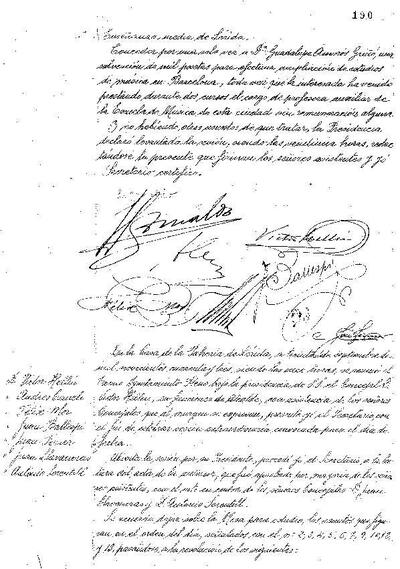 190
Enseñanza media de Lérida.
Conceder por una sola vez a Dª Guadalupe Amorós Griñó, una
subvención de mil pesetas para efectuar ampliación de estudios
de música en Barcelona, toda vez que la interesada ha venido
prestando durante dos cursos el cargo de profesora auxiliar de
la Escuela de Musica de esta ciudad sin remuneración alguna.
Y no habiendo otros asuntos de que tratar, la Presidencia
declaró levantada la sesión, siendo las veintiuna horas,
la presente que firman los señores asistentes y yó
Secretario certifico.
Víctor Hellín
En la Casa de la Paheria de Lérida, a de septiembre de
mil novecientos cuarenta y seis, siendo las once horas, se reunió el
Excmo Ayuntamiento Pleno bajo la presidencia de
Víctor Hellín, en funciones de Alcalde, con asistencia de los señores
Concejales que al margen se expresan, presente yó el Secretario, con
el fin de celebrar sesión extraordinaria, convocada para el día de
la fecha.
D. Víctor Hellín
Andres
Felix Mor
Juan Ballespí
Juan
Juan Llavaneras
Antonio
Abierta la sesión por su Presidente, procedí yó el Secretario, a la lec-
tura del acta de la anterior, que fué aprobada por mayoria de los seño-
res asistentes, con el voto en contra de los señores Concejales D. Juan
Llavaneras y D. Antonio
Se acuerda dejar sobre la Mesa para estudio, los asuntos que figu-
ran en el orden del día, señalados con el nº 2, 3, 4, 5, 6, 7, 9, 10, 12,
y 13, pasándose a la resolución de los siguientes: